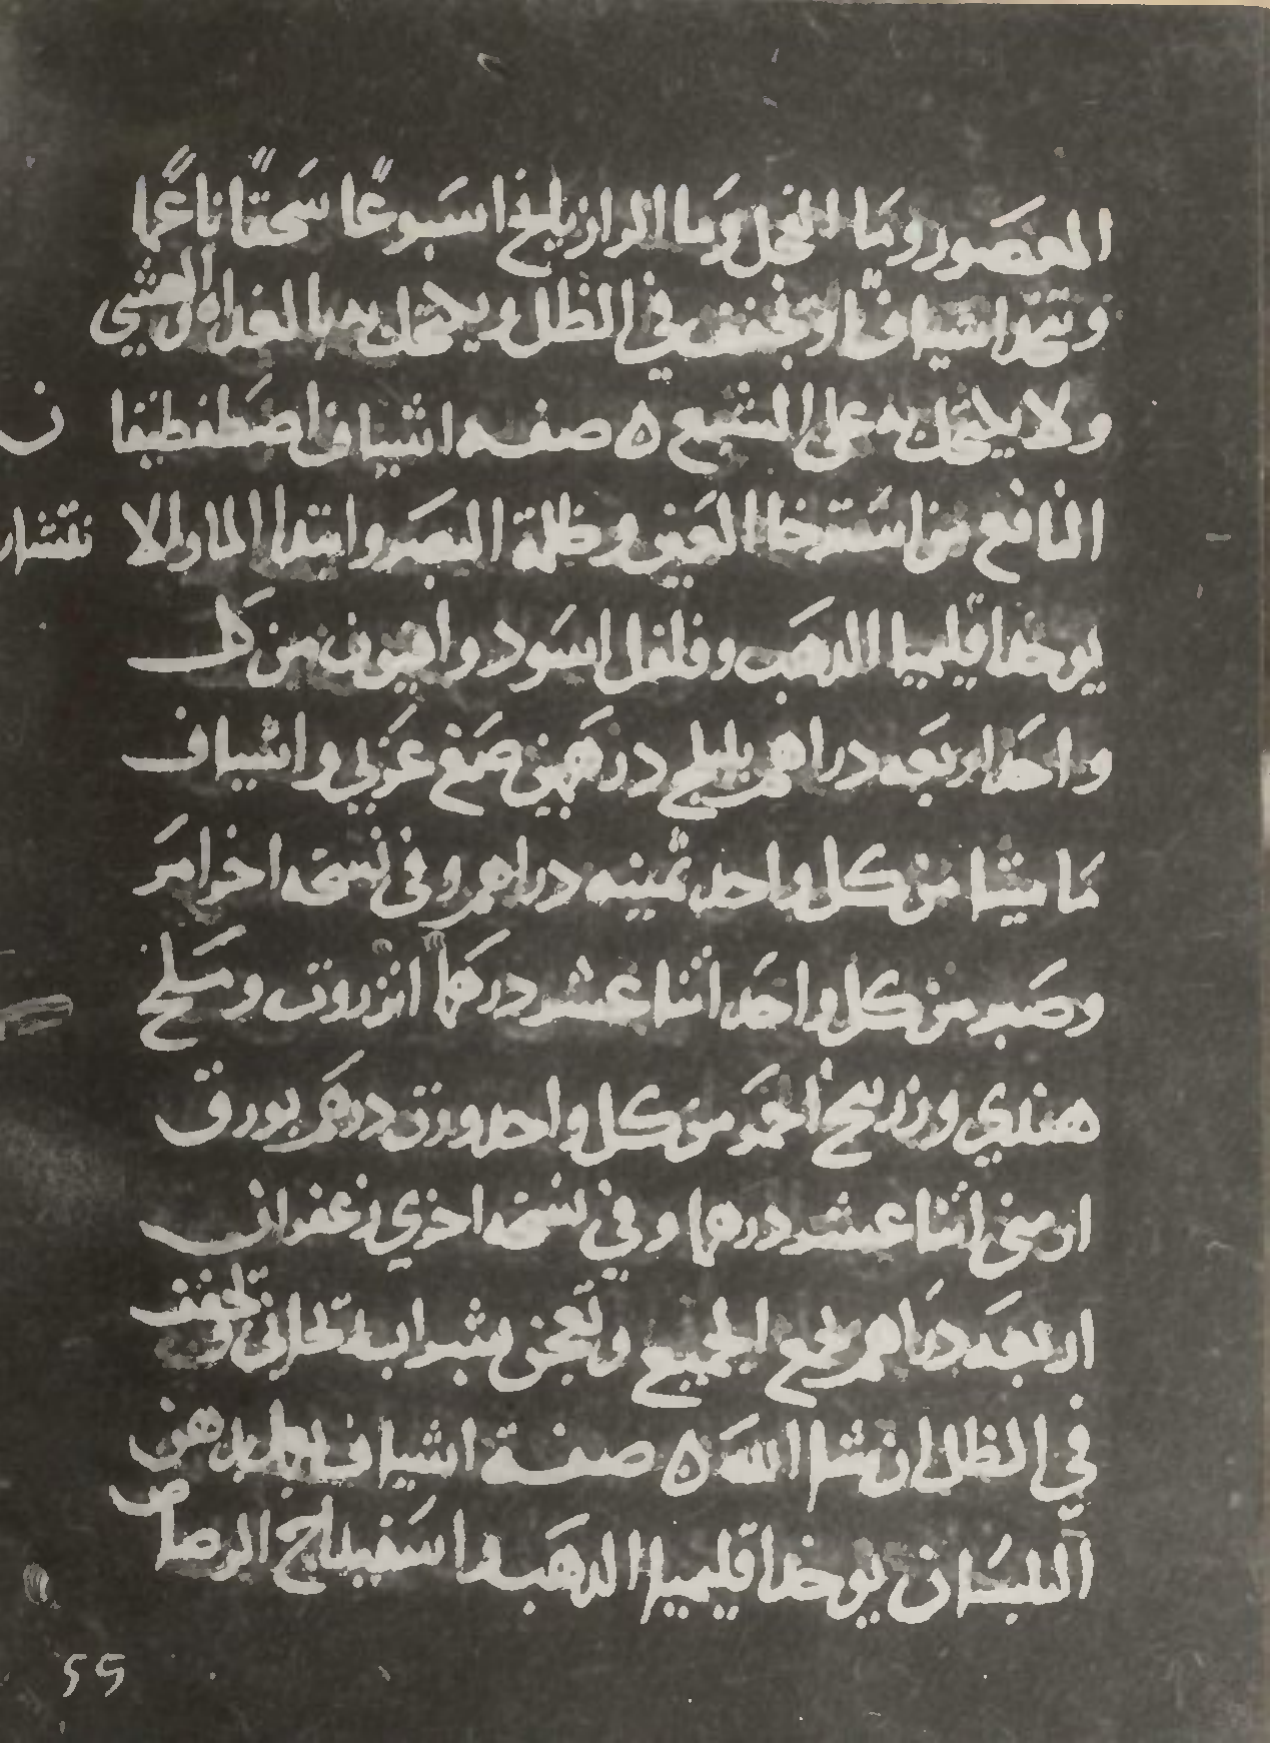 المعصور وما الفجل وما الرازيانج اسبوعًا سحقًا ناعمًا
وتتخذ اشيافًا وتجفف في الظل ويكتحل به بالغداه والعشي
ولا يكتحل به على الشبع ه صفه اشياف اصطفطيفا
النافع من استرخا العين وظلمة البصر وابتدا الما والا نتشار
يوخذ اقليميا الذهب وفلفل اسود وافيون من كل
واحد اربعه دراهم بليلج درهمين صمغ عربي واشياف
ماميثا من كل واحد ثمنيه دراهم وفي نسخه اخرا مر
وصبر من كل واحد اثنا عشر درهمًا انزروت وملح
هندي وزرنيخ احمر من كل واحد وزن درهم بورق
ارمني اثنا عشر درهما وفي نسخه اخري زعفران
اربعه دراهم يجمع الجميع وتعجن بشراب وتجفف
في الظل ان شا الله ه صفة اشياف دهن
البلسان يوخذ اقليميا الذهب واسفيداج الرصاص
ن
55